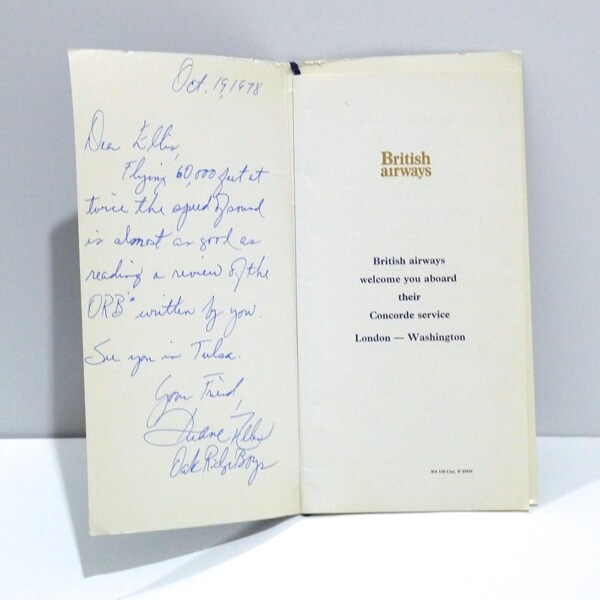 Oct. 19, 1978
Dear Ellis,
Flying 60,000 feet at
twice the speed of sound
is almost as good as
reading a review of the
ORB's written by you.
See you in Tulsa.
Your Friend,
Duane Allen
Oak Ridge Boys
British
airways
British airways
welcome you aboard
their
Concorde service
London — Washington